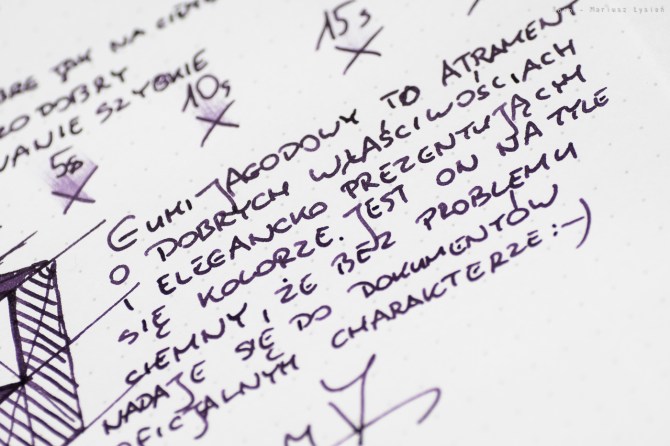 Mariusz Łysień
JAK NA
DOBRY
SZYBKIE
15s
10s
5s
GUMIJAGODOWY TO ATRAMENT
O DOBRYCH WŁAŚCIWOŚCIACH
I ELEGANCKO PREZENTUJĄCYM
SIĘ KOLORZE. JEST ON NA TYLE
CIEMNY, ŻE BEZ PROBLEMU
NADAJE SIĘ DO DOKUMENTÓW
OFICJALNYM CHARAKTERZE :-)